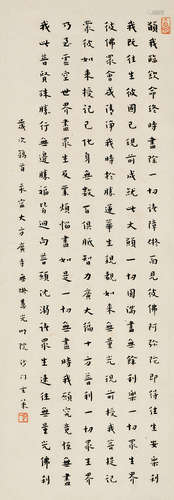 願我臨欲命終時盡除一切諸障礙面見彼佛阿彌陀即得往生安樂剎
我既往生彼國已現前成就此大願一切圓滿盡無餘利樂一切眾生界
彼佛眾會咸清淨我時於勝蓮華生親覩如來無量光現前授我菩提記
蒙彼如來授記已化身無數百俱胝智力廣大徧十方普利一切眾生界
乃至虛空世界盡眾生及業煩惱盡如是一切無盡時我願究竟恆無盡
我此普賢殊勝行無邊勝福皆迴向普願沈溺諸眾生速往無量光佛剎
歲次 首 大 寺無 慧光明院沙門